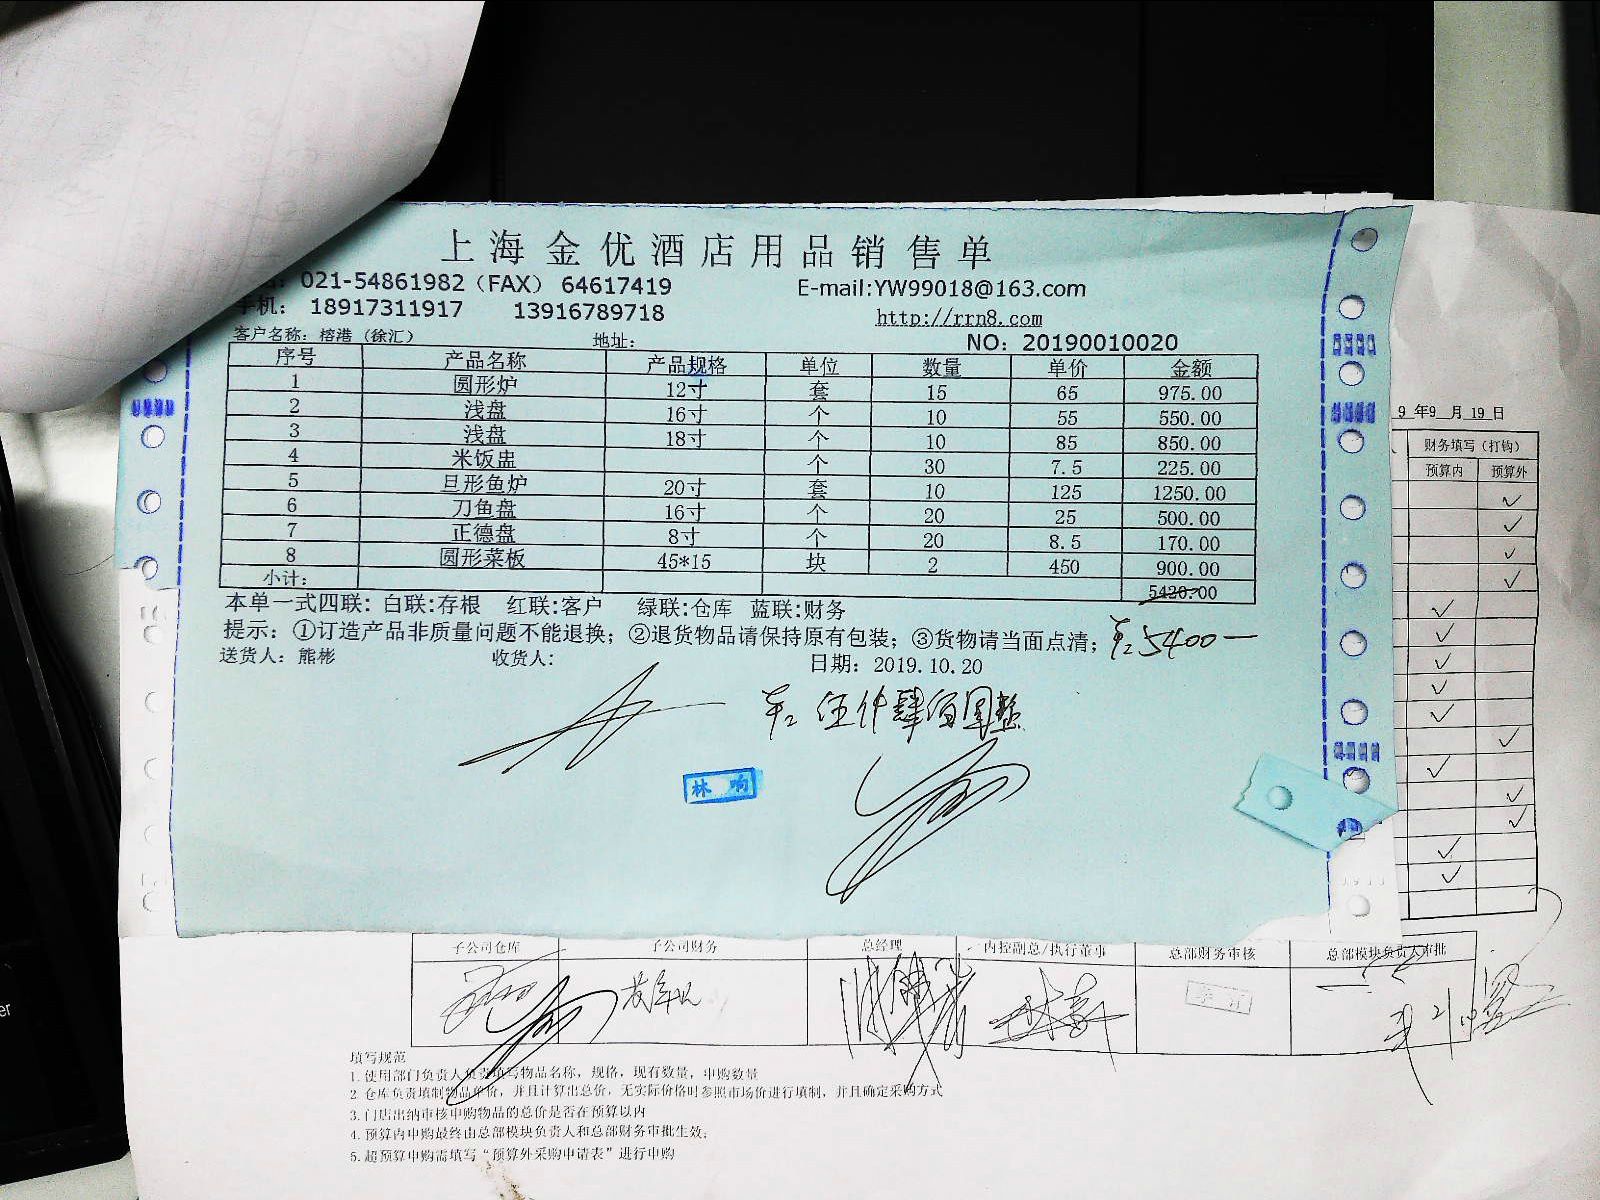 上海金优酒店用品销售单
021-54861982（FAX） 64617419 E-mail:YW99018@163.com
手机： 18917311917 13916789718 http://rrn8.com
客户名称：榕港（徐汇） 地址： NO：20190010020
序号 产品名称 产品规格 单位 数量 单价 金额
1 圆形炉 12寸 套 15 65 975.00
2 浅盘 16寸 个 10 55 550.00
3 浅盘 18寸 个 10 85 850.00
4 米饭盅 个 30 7.5 225.00
5 旦形鱼炉 20寸 套 10 125 1250.00
6 刀鱼盘 16寸 个 20 25 500.00
7 正德盘 8寸 个 20 8.5 170.00
8 圆形菜板 45*15 块 2 450 900.00
小计： 5420.00
本单一式四联：白联:存根 红联:客户 绿联:仓库 蓝联:财务
提示：①订造产品非质量问题不能退换；②退货物品请保持原有包装；③货物请当面点清； 5400
送货人：熊彬 收货人： 日期：2019.10.20
伍仟肆佰圆整
林响
9 年9 月 19 日
财务填写（打钩）
预算内 预算外
子公司仓库 子公司财务 总经理 内控副总/执行董事 总部财务审核 总部模块负责人审批
填写规范
1.使用部门负责人负责填写物品名称，规格，现有数量，申购数量
2 仓库负责填制物品单价，并且计算出总价，无实际价格时参照市场价进行填制，并且确定采购方式
3.门店出纳审核申购物品的总价是否在预算以内
4.预算内申购最终由总部模块负责人和总部财务审批生效；
5.超预算申购需填写“预算外采购申请表”进行申购